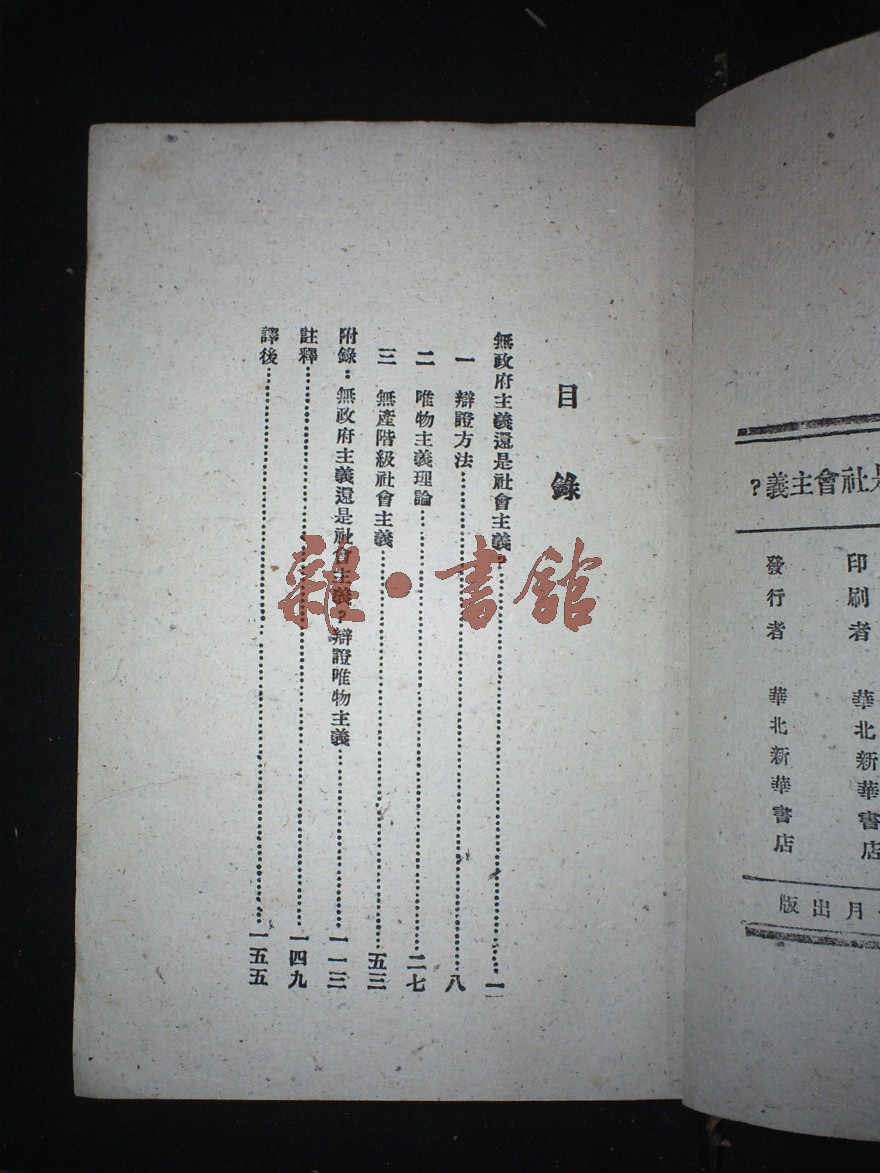 目錄
無政府主義還是社會主義?……一
一 辯證方法……八
二 唯物主義理論……二七
三 無產階級社會主義……五三
附錄:無政府主義還是社會主義?辯證唯物主義……一一三
註釋……一四九
譯後……一五五
雜·書館
社會主義?
印刷者 華北新華書店
發行者 華北新華書店
月出版